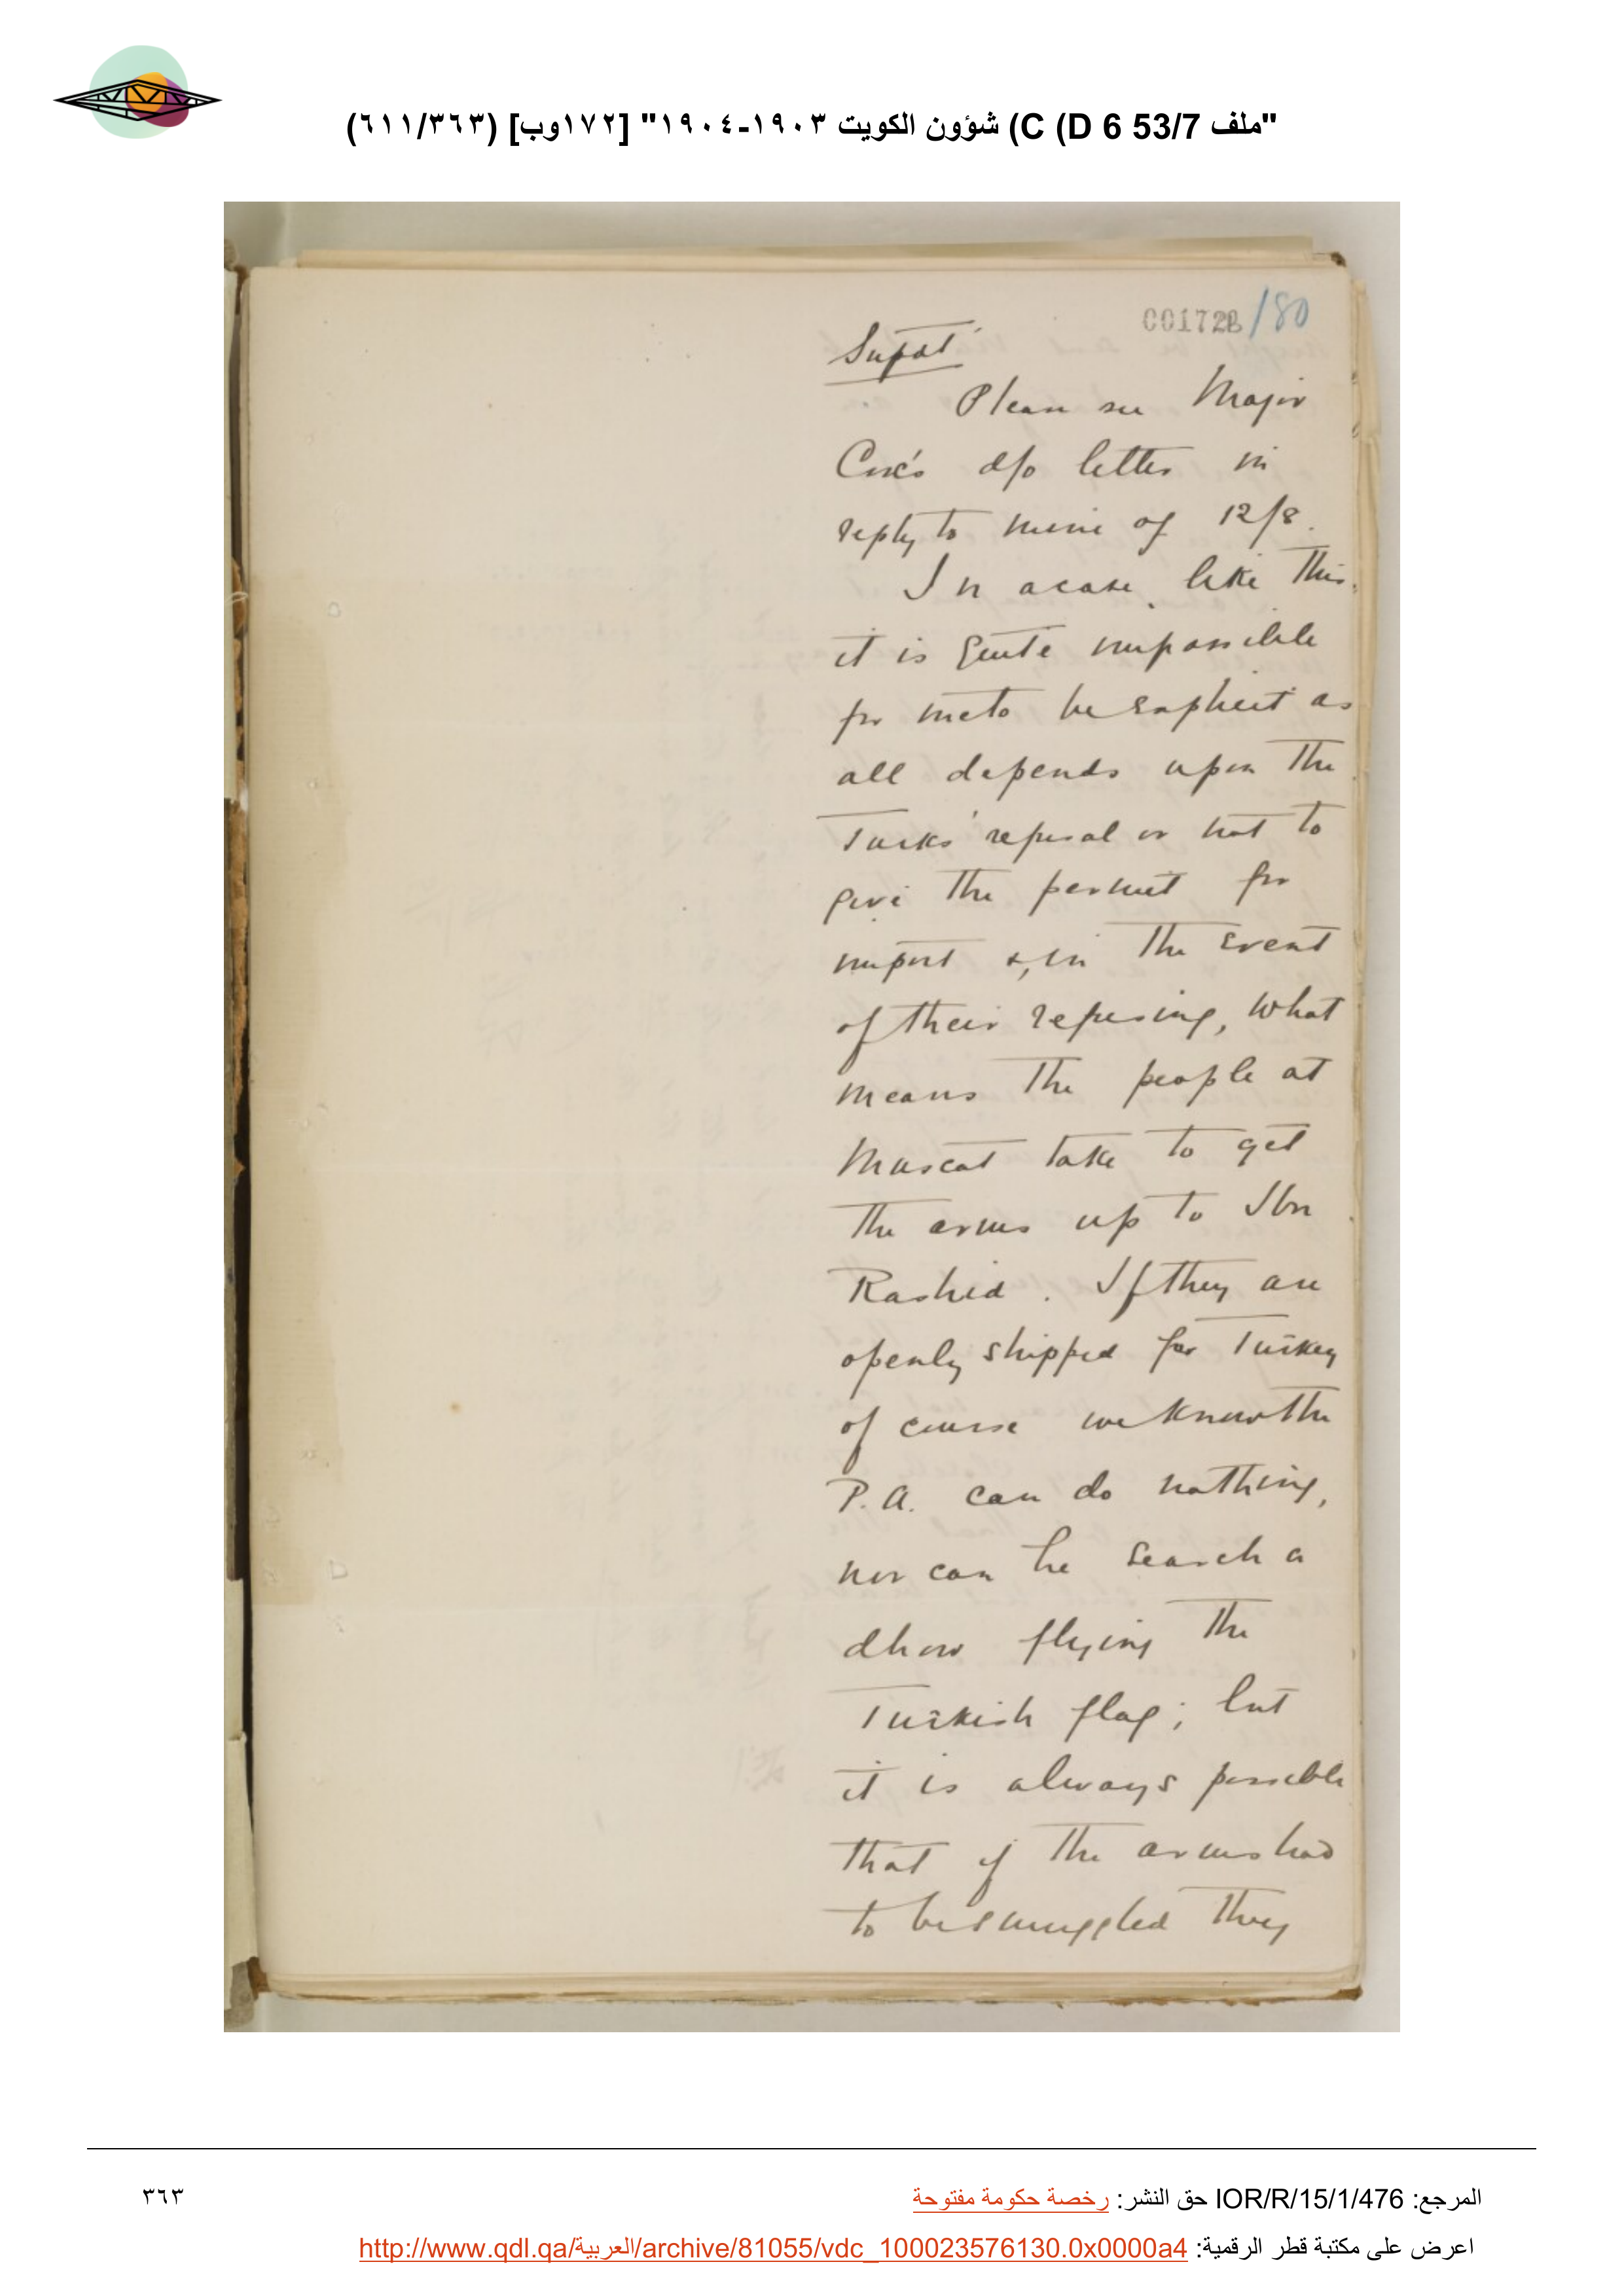 "ملف 53/7 C (D 6) شؤون الكويت ١٩٠٣-١٩٠٤" [١٧٢وب] (٦١١/٣٦٣)
001728 /80
Supdt
Please see Major
Cox's d/o letter in
reply to mine of 12/8.
In a case, like this,
it is quite impossible
for me to be explicit as
all depends upon the
Turks' refusal or not to
give the permit for
import &, in the event
of their refusing, what
means the people at
Muscat take to get
the arms up to Ibn
Rashid. If they are
openly shipped for Turkey
of course we know the
P.A. can do nothing,
nor can he search a
dhow flying the
Turkish flag; but
it is always possible
that if the arms had
to be smuggled they
المرجع: IOR/R/15/1/476 حق النشر: رخصة حكومة مفتوحة
٣٦٣
اعرض على مكتبة قطر الرقمية: http://www.qdl.qa/العربية/archive/81055/vdc_100023576130.0x0000a4